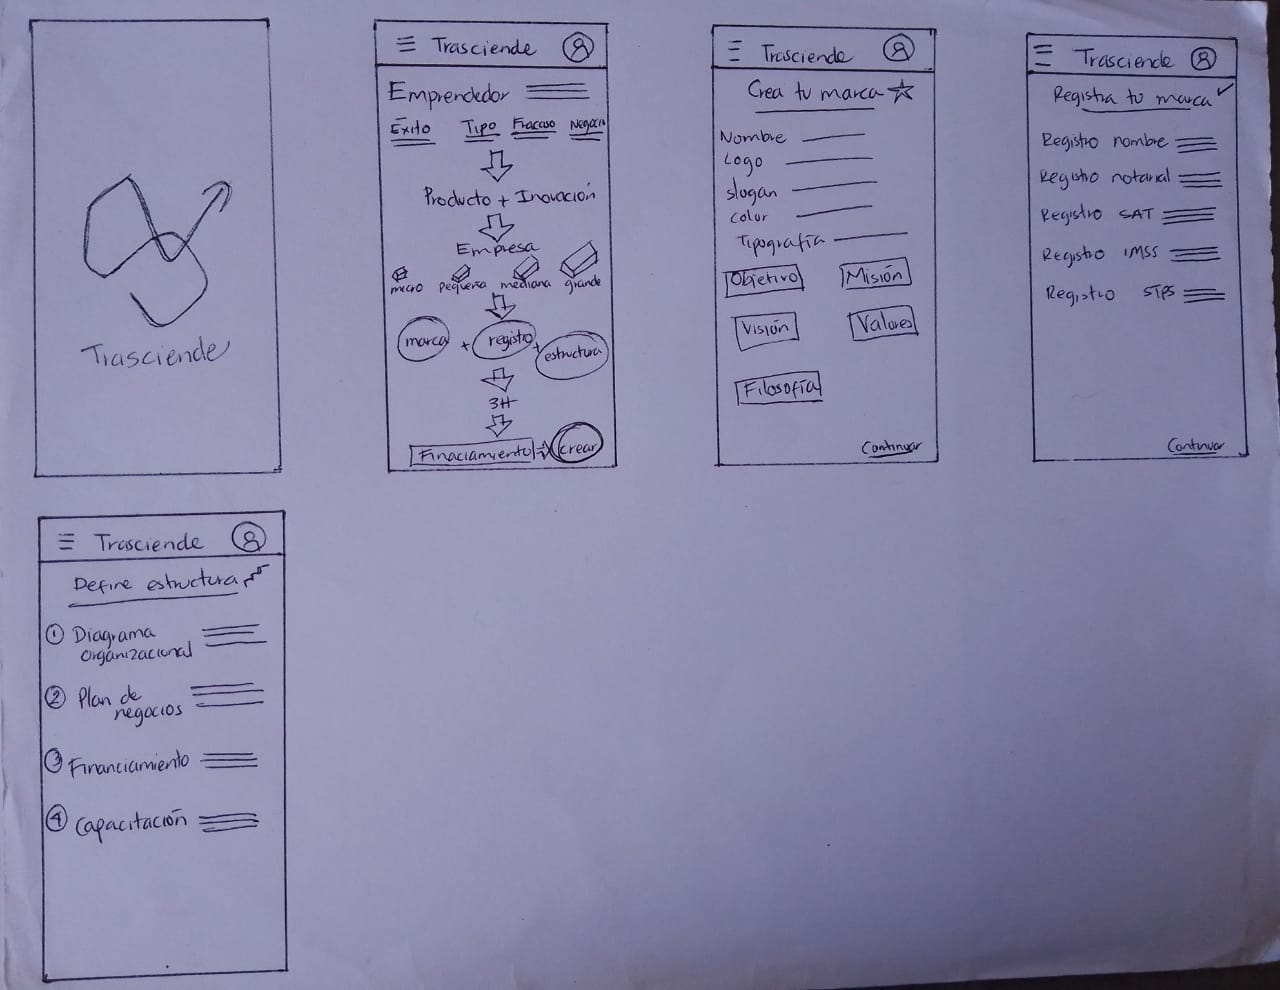 Trasciende
Trasciende
Emprendedor
Éxito Tipo Fracaso Negocio
Producto + Inovación
Empresa
micro pequeña mediana grande
marca + registro + estructura
3H
Finaciamiento crear
Trasciende
Crea tu marca
Nombre
Logo
slogan
color
Tipografía
Objetivo Misión
Visión Valores
Filosofía
Continuar
Trasciende
Registra tu marca
Registro nombre
Registro notarial
Registro SAT
Registro IMSS
Registro STPS
Continuar
Trasciende
Define estructura
1 Diagrama
organizacional
2 Plan de
negocios
3 Financiamiento
4 Capacitación